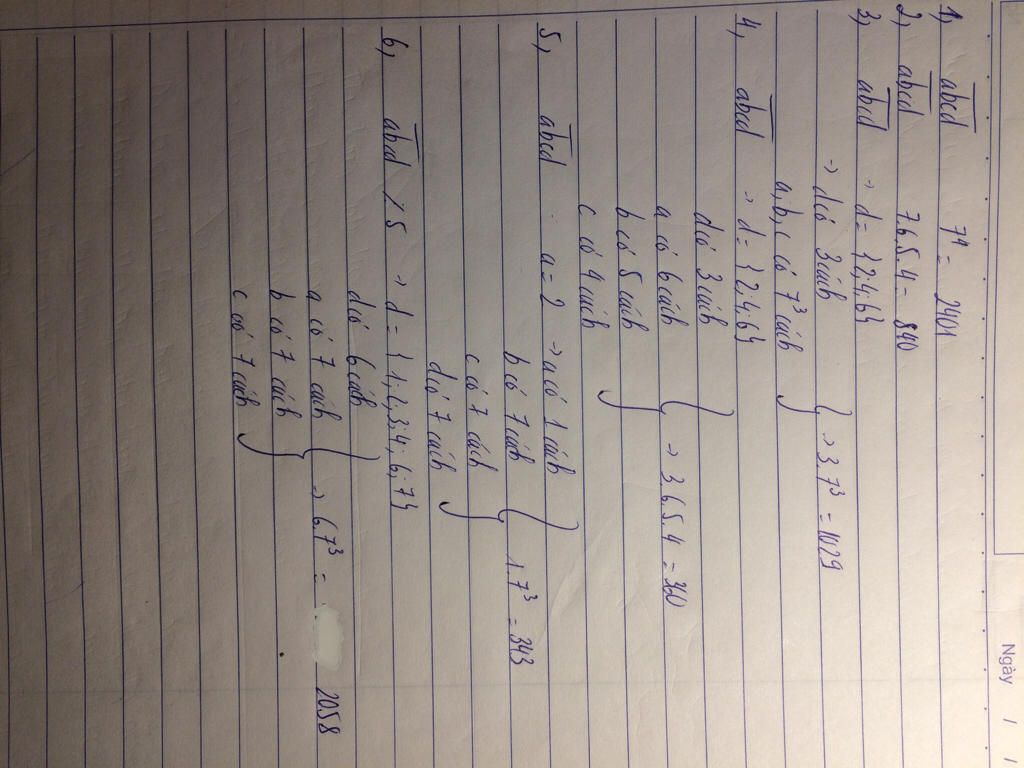 Ngày / /
1, abcd 7⁴ = 2401
2, abcd 7.6.5.4 = 840
3, abcd → d = {2;4;6}
→ d có 3 cách
a, b, c có 7³ cách } → 3.7³ = 1029
4, abcd → d = {2;4;6}
d có 3 cách
a có 6 cách
b có 5 cách } → 3.6.5.4 = 360
c có 4 cách
5, abcd a = 2 → a có 1 cách
b có 7 cách } 1.7³ = 343
c có 7 cách
d có 7 cách
6, abcd ⁒ 5 → d = {1;2;3;4;6;7}
d có 6 cách
a có 7 cách } → 6.7³ = 2058
b có 7 cách
c có 7 cách